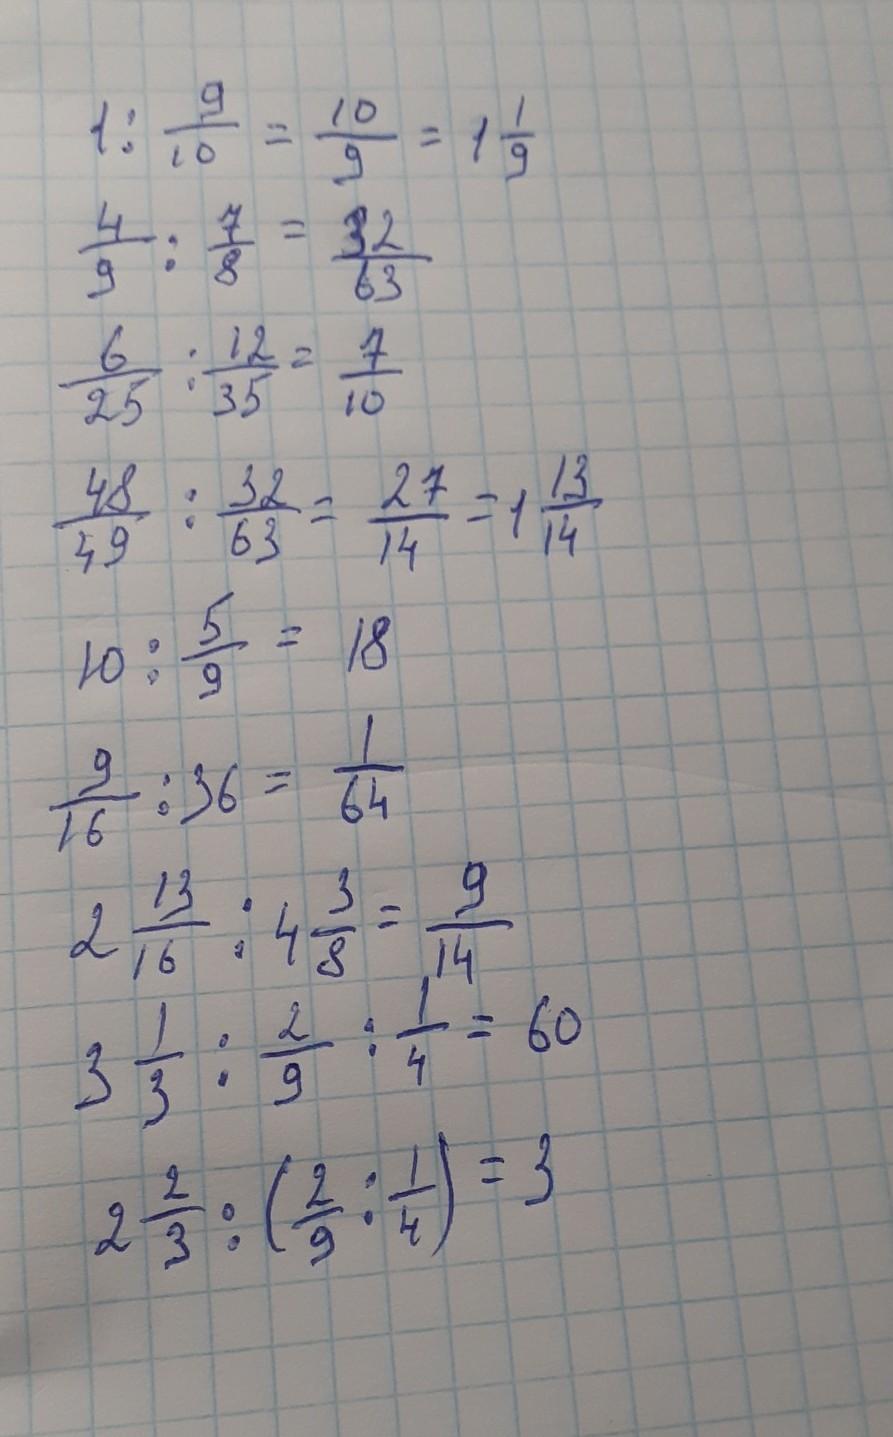 1 : 9/10 = 10/9 = 1 1/9
4/9 : 7/8 = 32/63
6/25 : 12/35 = 7/10
48/49 : 32/63 = 27/14 = 1 13/14
10 : 5/9 = 18
9/16 : 36 = 1/64
2 13/16 : 4 3/8 = 9/14
3 1/3 : 2/9 : 1/4 = 60
2 2/3 : (2/9 : 1/4) = 3